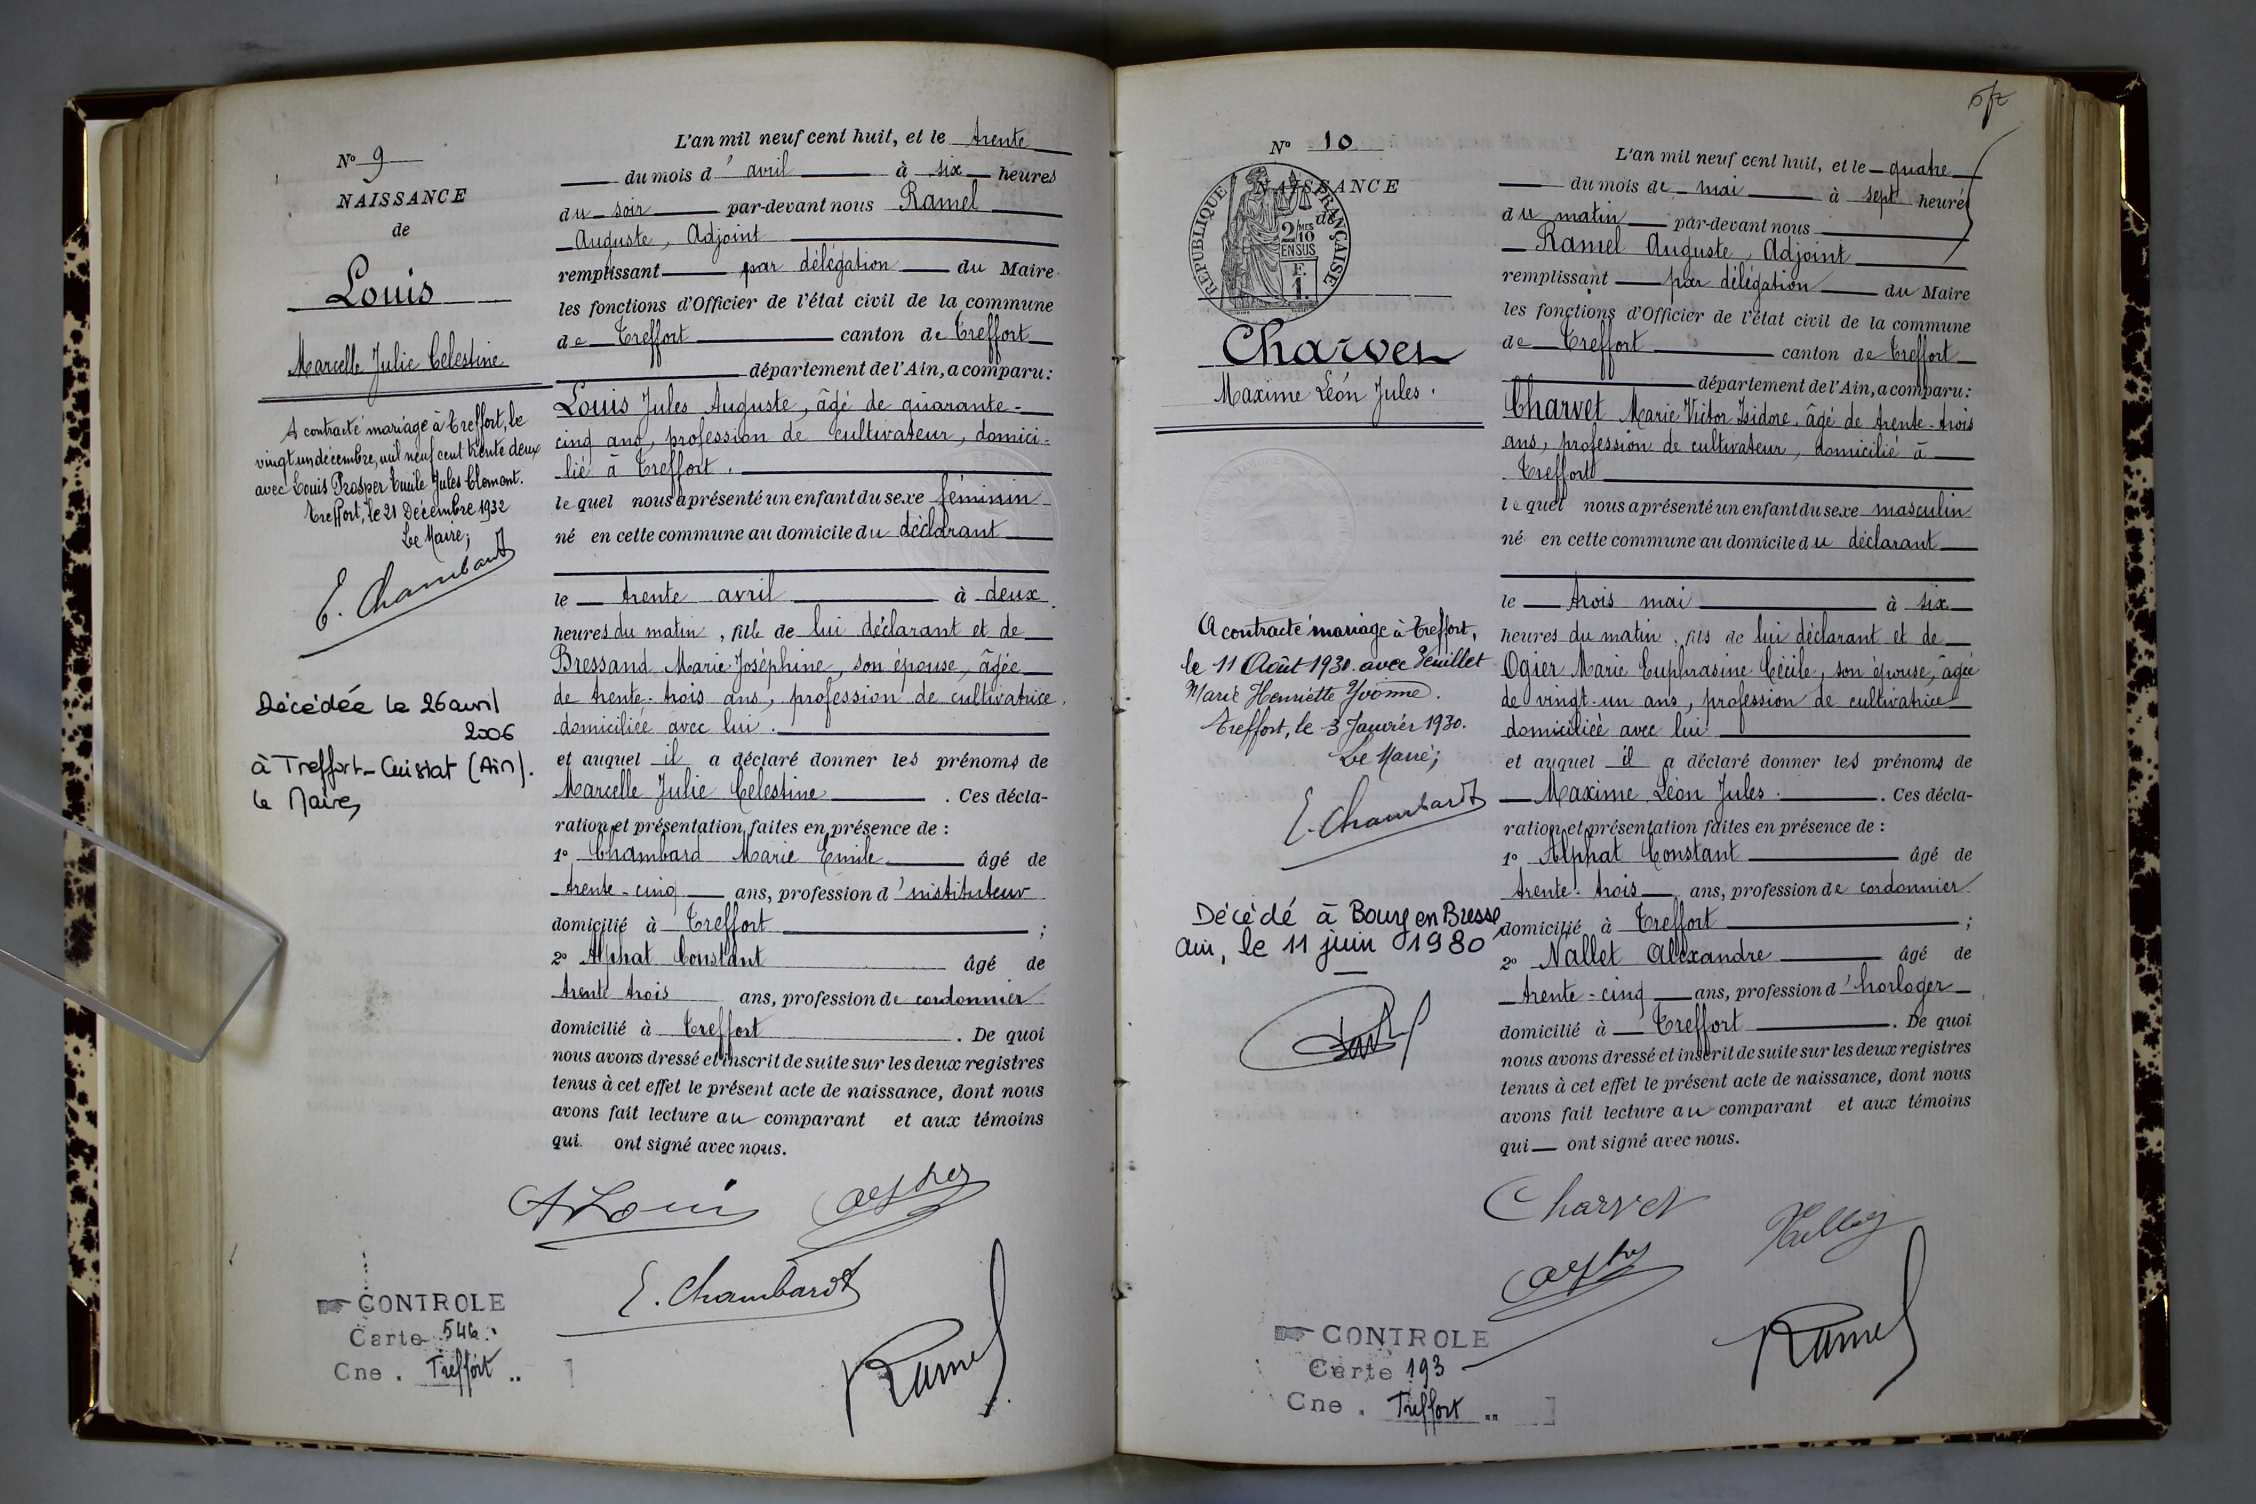 L'an mil neuf cent huit, et le trente
du mois d'avril à six heures
du soir par-devant nous Ramel
Auguste, Adjoint
remplissant par délégation du Maire
les fonctions d'Officier de l'état civil de la commune
de Treffort canton de Treffort
département de l'Ain, a comparu :
Louis Jules Auguste, âgé de quarante-
cinq ans, profession de cultivateur, domici-
lié à Treffort.
le quel nous a présenté un enfant du sexe féminin
né en cette commune au domicile du déclarant
le trente avril à deux
heures du matin, fille de lui déclarant et de
Bressand Marie Joséphine, son épouse, âgée
de trente-trois ans, profession de cultivatrice,
domiciliée avec lui.
et auquel il a déclaré donner les prénoms de
Marcelle Julie Celestine. Ces décla-
ration et présentation faites en présence de :
1° Chambard Marie Emile âgé de
trente-cinq ans, profession d'instituteur
domicilié à Treffort ;
2° Alphat Constant âgé de
trente trois ans, profession de cordonnier
domicilié à Treffort. De quoi
nous avons dressé et inscrit de suite sur les deux registres
tenus à cet effet le présent acte de naissance, dont nous
avons fait lecture au comparant et aux témoins
qui ont signé avec nous.
A Louis
E. Chambard
Ramel
N° 9
NAISSANCE
de
Louis
Marcelle Julie Celestine
A contracté mariage à Treffort, le
vingt un décembre, mil neuf cent trente deux
avec Louis Prosper Emile Jules Clement.
Treffort, le 21 Décembre 1932
Le Maire;
E. Chambard
Décédée le 26 avril
2006
à Treffort-Cuisiat (Ain).
le Maire,
CONTROLE
Carte 546
Cne. Treffort
6/7
N° 10
NAISSANCE
de
RÉPUBLIQUE FRANÇAISE
2 MES
10
EN SUS
F.
1.
Charvet
Maxime Léon Jules.
A contracté mariage à Treffort,
le 11 Août 1930. avec
Marie Henriette Yvonne.
Treffort, le 3 Janvier 1930.
Le Maire;
E. Chambard
Décédé à Bourg en Bresse
Ain, le 11 juin 1980
CONTROLE
Carte 193
Cne. Treffort
L'an mil neuf cent huit, et le quatre
du mois de mai à sept heures
du matin par-devant nous
Ramel Auguste, Adjoint
remplissant par délégation du Maire
les fonctions d'Officier de l'état civil de la commune
de Treffort canton de Treffort
département de l'Ain, a comparu :
Charvet Marie Victor Isidore, âgé de trente-trois
ans, profession de cultivateur, domicilié à
Treffort
le quel nous a présenté un enfant du sexe masculin
né en cette commune au domicile du déclarant
le trois mai à six
heures du matin, fils de lui déclarant et de
Ogier Marie Euphrasine Cécile, son épouse, âgée
de vingt-un ans, profession de cultivatrice
domiciliée avec lui
et auquel il a déclaré donner les prénoms de
Maxime Léon Jules. Ces décla-
ration et présentation faites en présence de :
1° Alphat Constant âgé de
trente-trois ans, profession de cordonnier
domicilié à Treffort ;
2° Nallet Alexandre âgé de
trente-cinq ans, profession d'horloger
domicilié à Treffort. De quoi
nous avons dressé et inscrit de suite sur les deux registres
tenus à cet effet le présent acte de naissance, dont nous
avons fait lecture au comparant et aux témoins
qui ont signé avec nous.
Charvet
Ramel